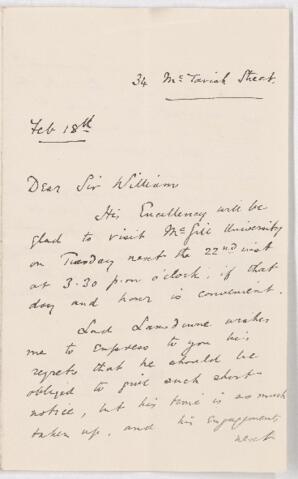 34 McTavish Street.
Feb 18th
Dear Sir William
His Excellency will be
glad to visit McGill University
on Tuesday next the 22nd inst
at 3.30 p.m o'clock if that
day and hour is convenient.
Lord Lansdowne wishes
me to express to you his
regrets that he should be
obliged to give such short
notice, but his time is so much
taken up, and his engagements
next